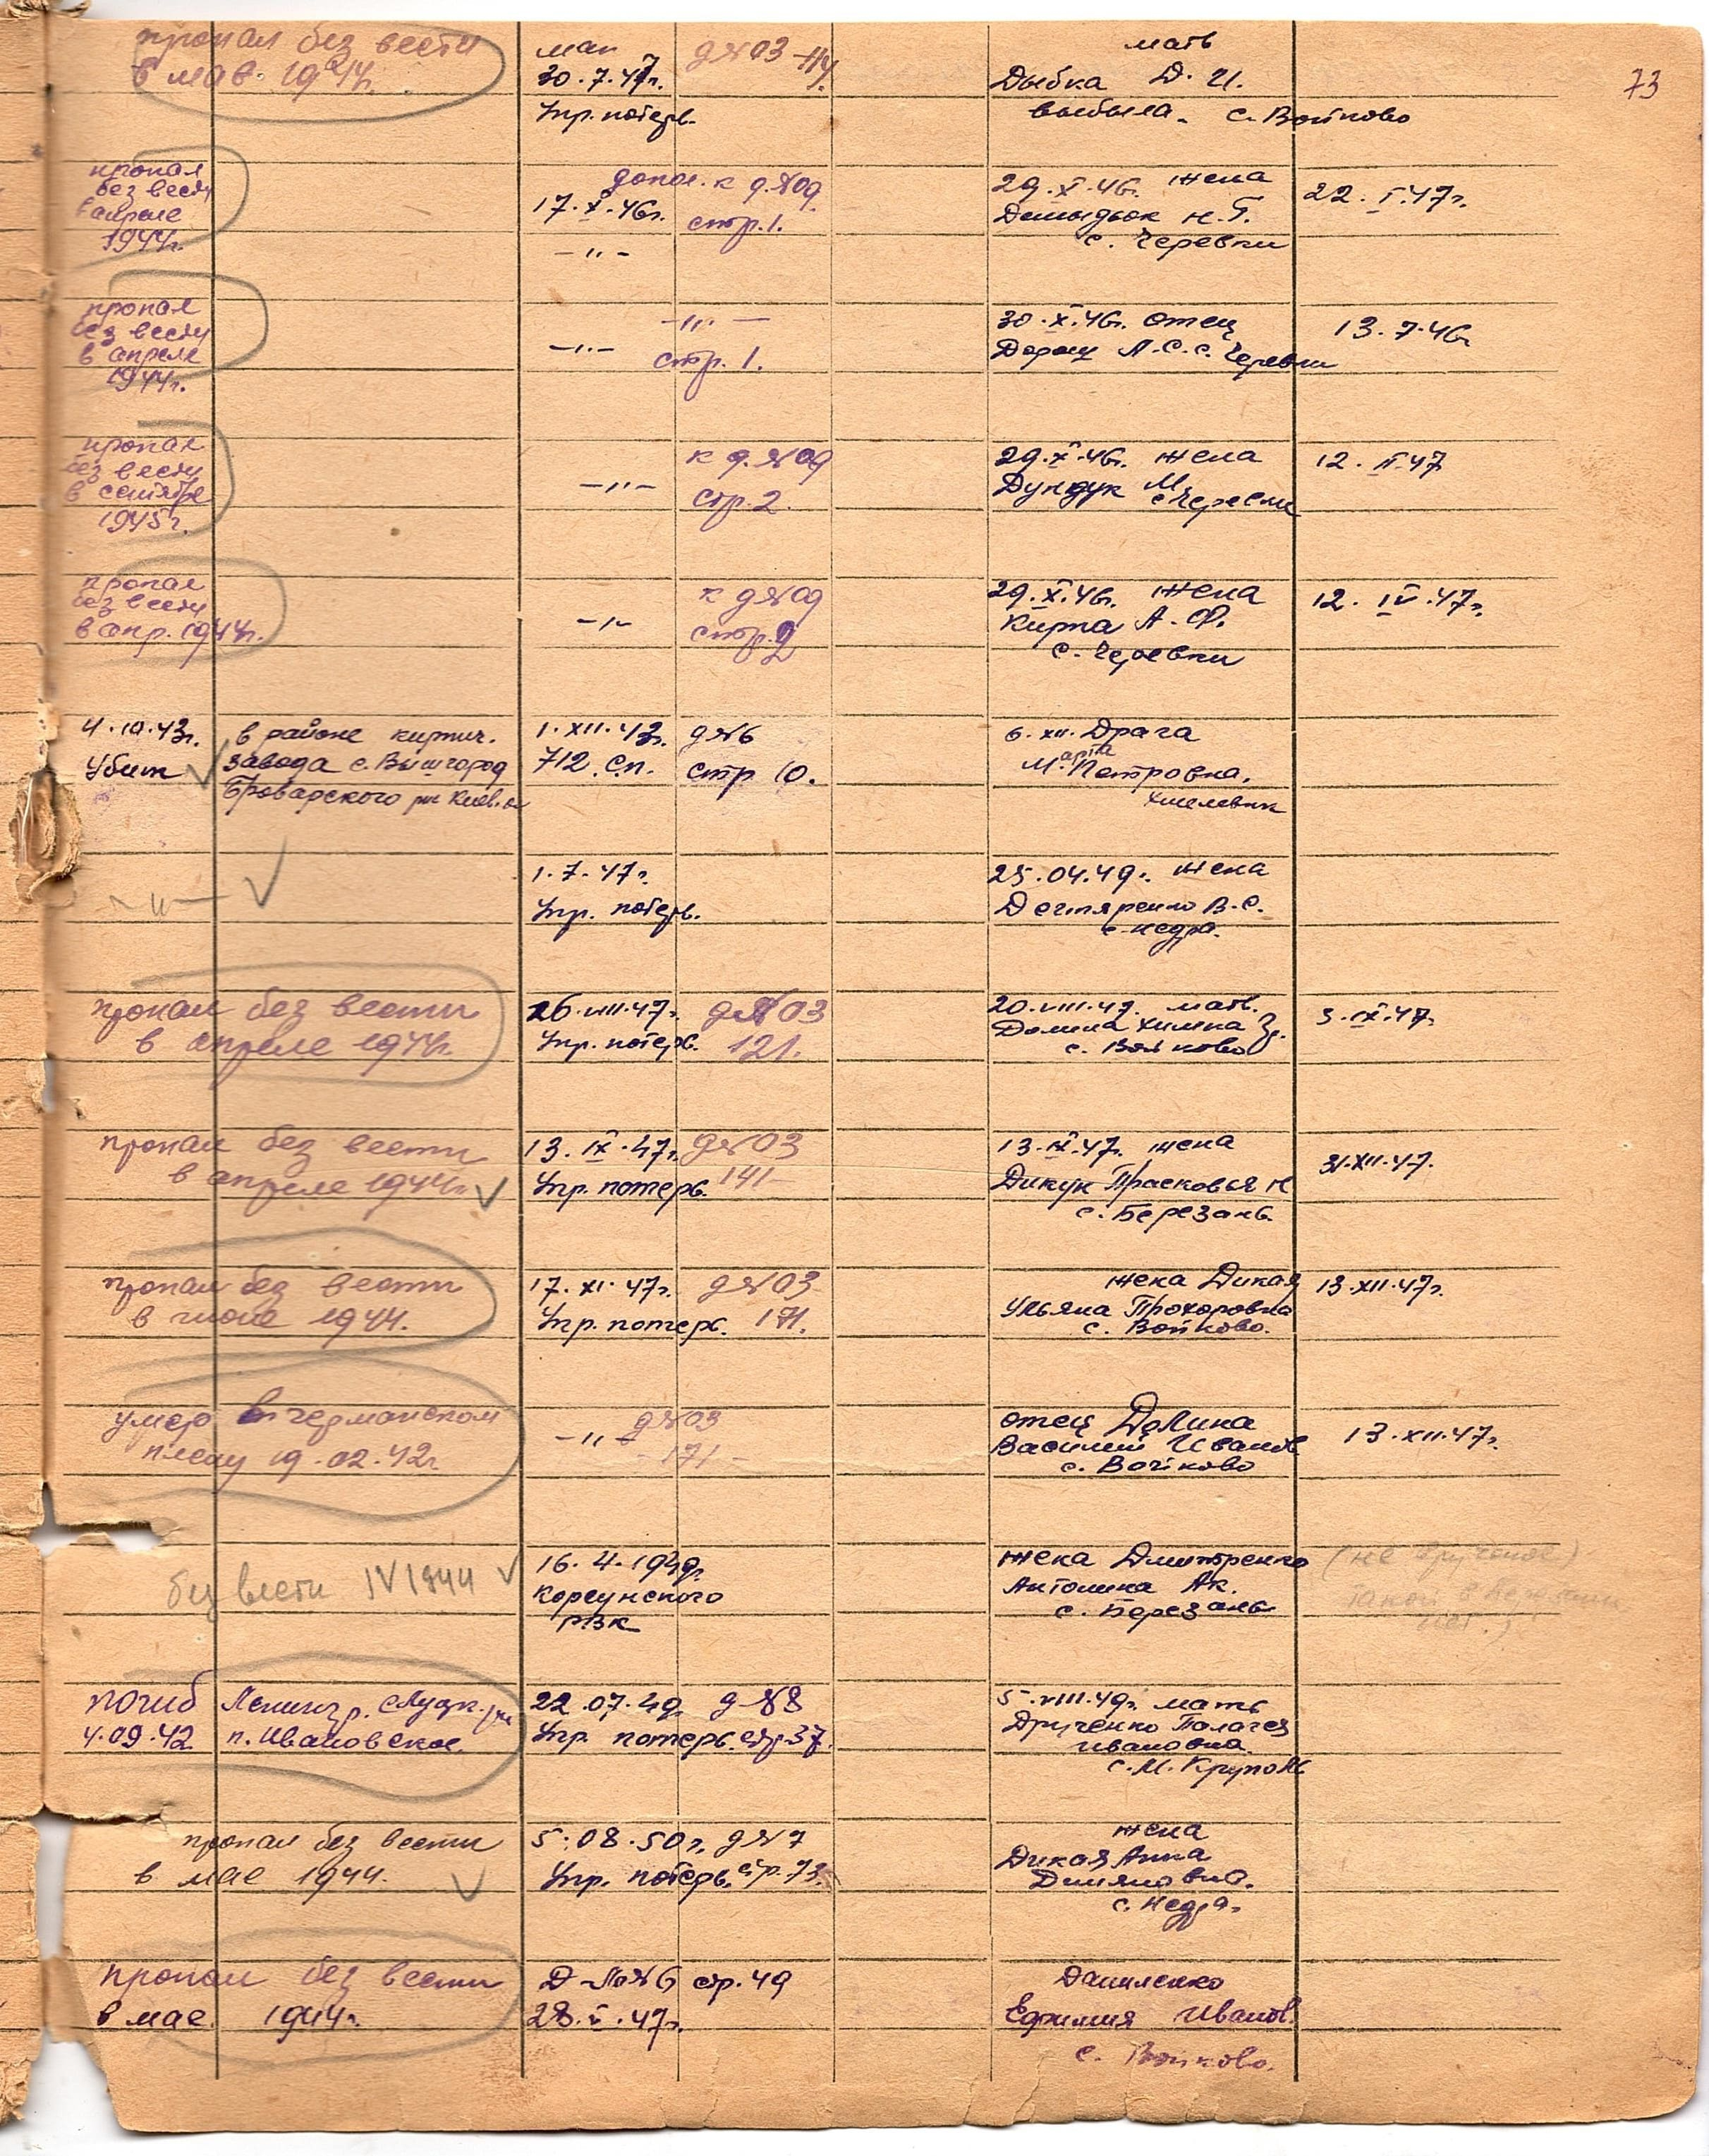 73
пропал без вести
в мае 1944г.
май
30.7.47г.
Упр. потерь.
д №03-114.
мать
Дыбка Д. И.
выбыла. с. Войково
пропал
без вести
в апреле
1944г.
17.X.46г.
-"-
допол. к д.№09.
стр.1.
29.X.46г. жена
Демидьок Н.Г.
с. Черевки
22.I.47г.
пропал
без вести
в апреле
1944г.
-"-
-"-
стр.1.
30.X.46г. отец
Дорош А.С. с. Черевки
13.7.46г
пропал
без вести
в сентябре
1945г.
-"-
к д.№09
стр.2.
29.X.46г. жена
Дундук М
с Черевки
12.II.47
пропал
без вести
в апр.1944г.
-"-
к д№09
стр.2
29.X.46г. жена
Кирпа А.Ф.
с. Черевки
12.IV.47г.
4.10.43г.
Убит
в районе кирпич.
завода с. Вышгород
Броварского рн Киев.о
1.XII.43г.
712 с.п.
д№6
стр 10.
6.XII. Драга
Марта Петровна.
Хмелевик
-"-
1.7.47г.
Упр. потерь.
25.04.49г. жена
Дегтяренко В.С.
с. Недра.
пропал без вести
в апреле 1944г.
26.VIII.47г.
Упр. потерь.
д№03
121.
20.VIII.47. мать.
Долина Химка
с. Войково
3.IX.47г.
пропал без вести
в апреле 1944г.
13.IX.47г.
Упр. потерь.
д№03
141-
13.IX.47. жена
Дикун Прасковья Н
с. Березань.
31.XII.47.
пропал без вести
в июне 1944.
17.XI.47г.
Упр. потерь.
д№03
171.
жена Дикая
Ульяна Прохоровна
с. Войково.
13.XII.47г.
умер в германском
плену 19.02.42г.
-"-
д№03
-171-
отец Долина
Василий Иванов
с. Войково
13.XII.47г.
без вести IV 1944
16.4.1949г.
Корсунского
РВК
жена Дмитренко
Антонина Ак.
с. Березань
(не вручено)
такой в Березани
нет.)
погиб
4.09.42
Ленингр. Слуцк. рн
п. Ивановское.
22.07.49.
Упр. потерь.
д №8
стр.37.
5.VIII.49г. мать
Друченко Палагея
Ивановна.
с.М. Круполь
пропал без вести
в мае 1944.
5.08.50г.
Упр. потерь.
д№7
стр.73.
жена
Дикая Анна
Демяновна.
с. Недра.
пропал без вести
в мае 1944г.
Д-ло№6 стр.49
28.V.47г.
Даниленко
Ефимия Иванов.
с. Войково.